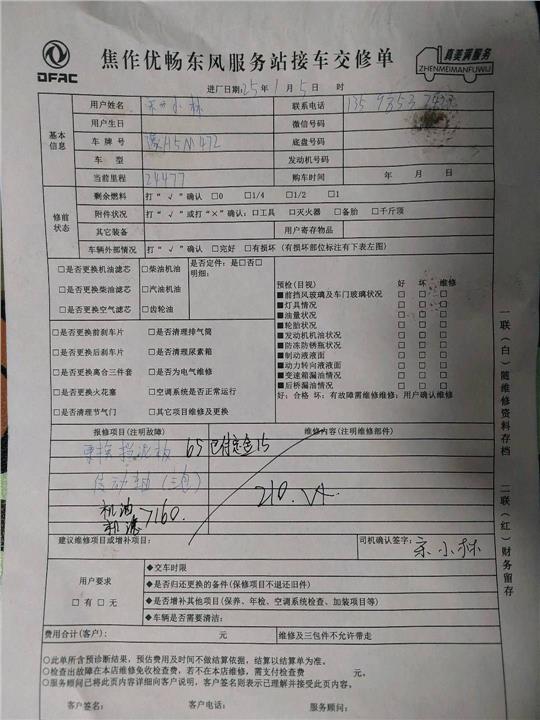 DFAC
焦作优畅东风服务站接车交修单
真美满服务
ZHENMEIMANFUWU
进厂日期:25年1月5日 时
基本信息
用户姓名 小林 联系电话
用户生日 微信号码
车牌号 豫H5M472 底盘号码
车型 发动机号码
当前里程 24477 购车时间 年 月 日
修前状态
剩余燃料 打“√”确认 □0 □1/4 □1/2 □1
附件状况 打“√”或打“×”确认:口工具 □灭火器 □备胎 □千斤顶
其它装备 用户寄存物品
车辆外部情况 打“√”确认 □完好 □有损坏(有损坏部位标注有下表左图)
□是否更换机油滤芯 □柴油机油 是否定件:是□否□
明细:
□是否更换柴油滤芯 □汽油机油
□是否更换空气滤芯 □齿轮油
□是否更换前刹车片 □是否清理排气筒
□是否更换后刹车片 □是否清理尿素箱
□是否更换离合三件套 □是否为电气维修
□是否更换火花塞 □空调系统是否正常运行
□是否清理节气门 □其它项目维修及更换
预检(目视) 好 坏 维修
■前挡风玻璃及车门玻璃状况 □ □ □
■灯具情况 □ □ □
■油量状况 □ □ □
■轮胎状况 □ □ □
■发动机机油状况 □ □ □
■防冻防锈瓶状况 □ □ □
■制动液液面 □ □ □
■动力转向液液面 □ □ □
■变速箱漏油情况 □ □ □
■后桥漏油情况 □ □ □
好:合格 坏:有故障需维修维修:用户确认维修
报修项目(注明故障) 维修内容(注明维修部件)
更换挡泥板 65 已付定金15
传动轴(三包)
机油
机滤 >160.
210.
建议维修项目或增补项目:
司机确认签字: 宋小林
用户要求
□有□无
◆交车时限
◆是否归还更换的备件(保修项目不退还旧件)
◆是否增补其他项目(保养、年检、空调系统检查、加装项目等)
◆车辆是否需要清洁:
费用合计(客户): 元 维修及三包件不允许带走
○此单所含预诊断结果,预估费用及时间不做结算依据,结算以结算单为准。
○检查出故障在本店维修免收检查费,若不在本店维修,需支付检查费 元。
○服务顾问已将此页内容详细向客户说明,客户签名则表示已理解并接受此页内容。
客户签名: 客户电话: 服务顾问:
一联(白)随维修资料存档
二联(红)财务留存